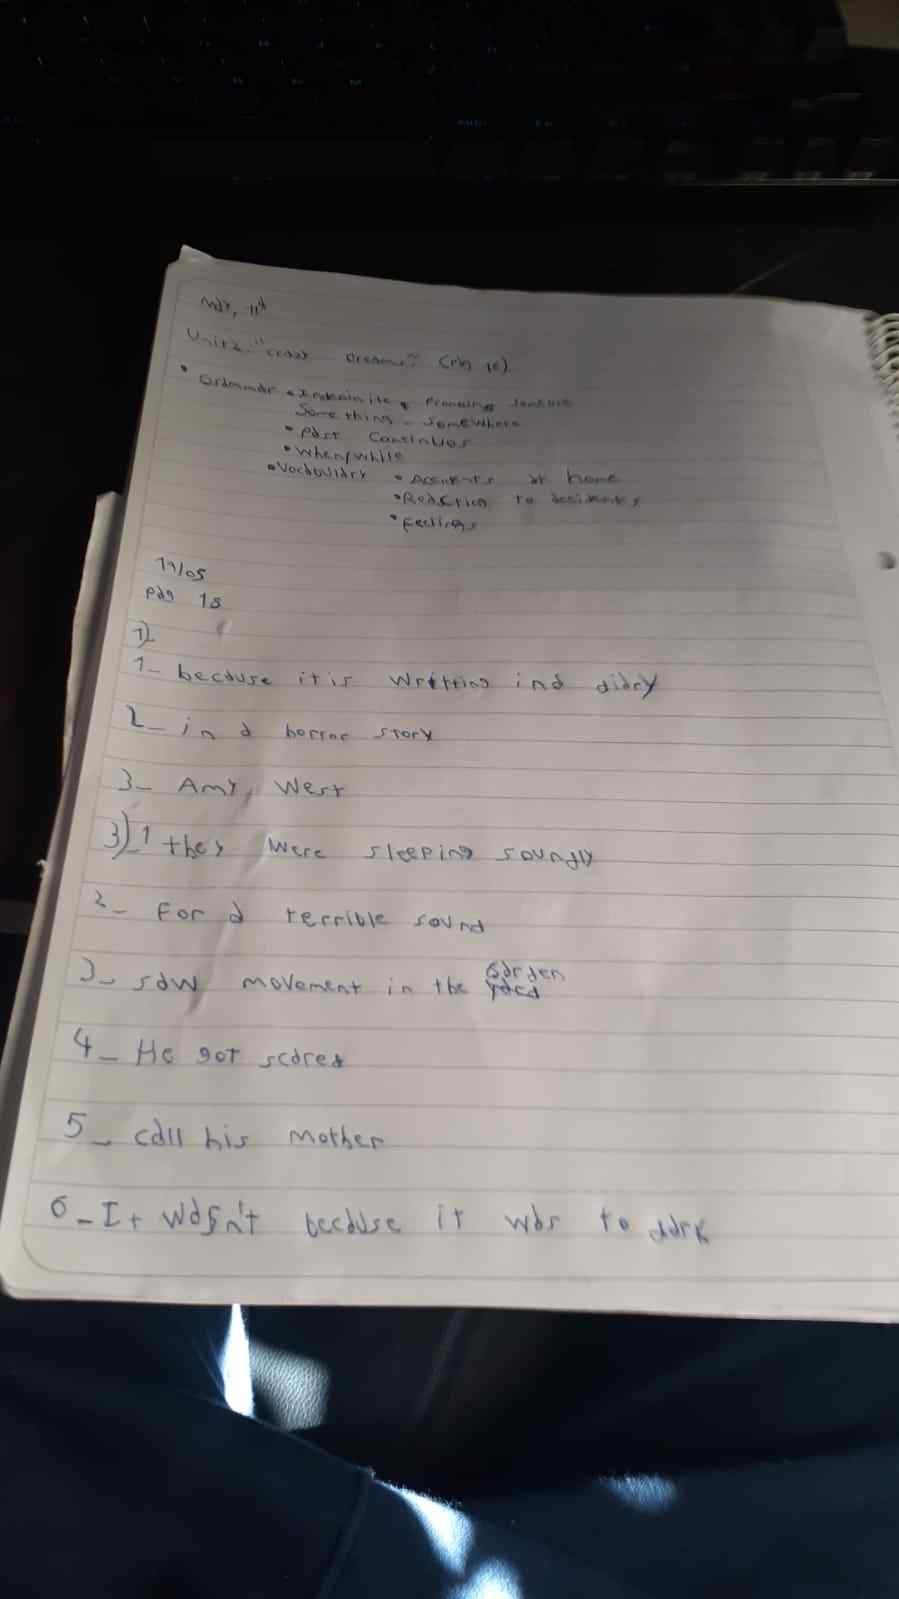 May, 11th
Unit 2: "Crazy Dreams" (
• Grammar • Indefinite
Something - Somewhere
• Past Continuos
• When/while
• Vocabulary • Accidents at home
• Reaction to accidents
• Feelings
11/05
pag 18
1)
1- because it is writting in a diary
2- in a horror story
3- Amy, West
3) 1 they were sleeping soundly
2- For a terrible sound
3- saw movement in the Garden
4- He got scared
5- call his mother
6- It wasn't because it was to dark